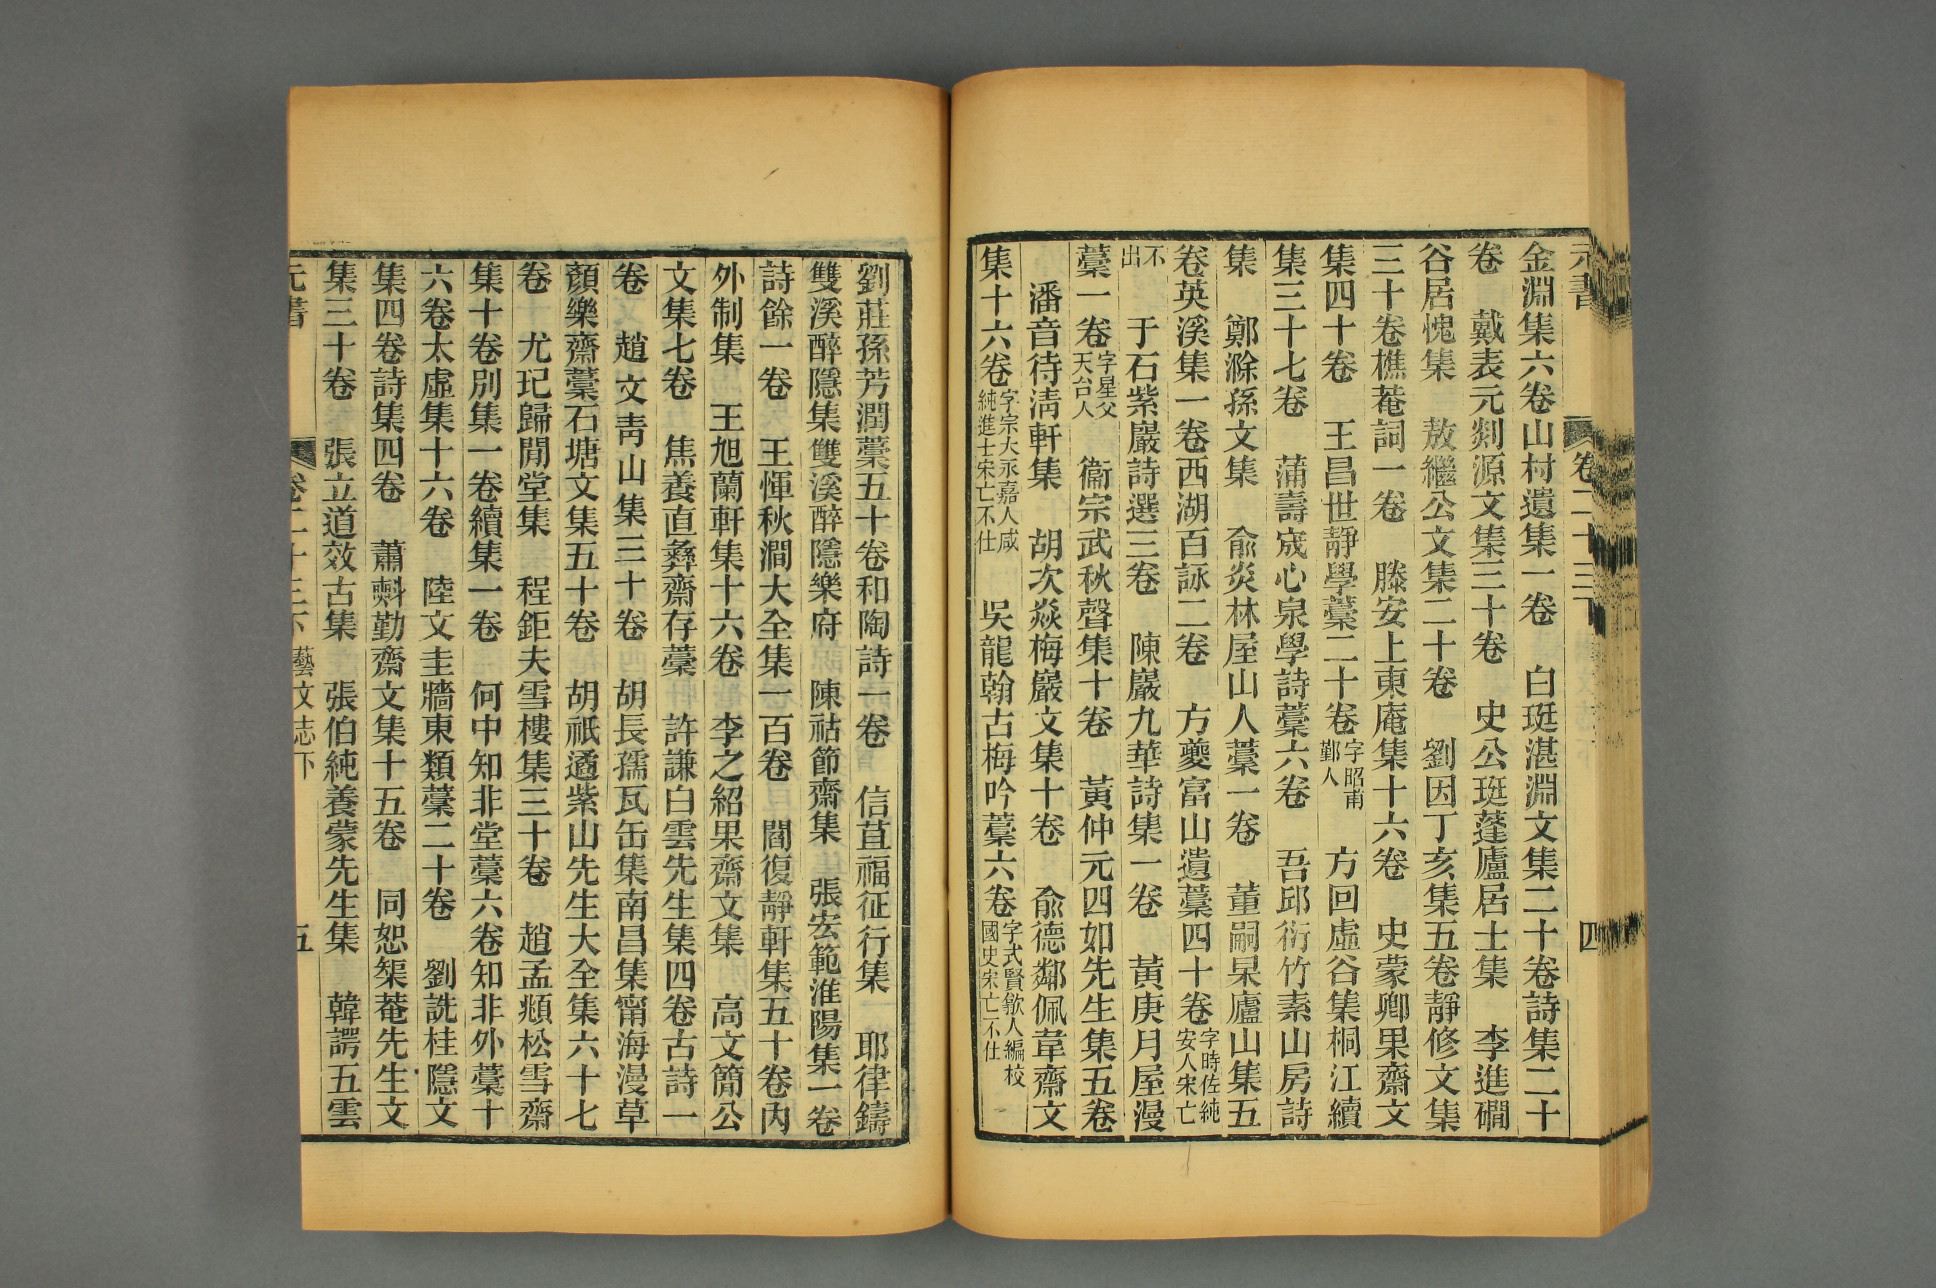 元書 卷二十三下 四
金淵集六卷山村遺集一卷 白珽湛淵文集二十卷詩集二十
卷 戴表元剡源文集三十卷 史公珽蓬廬居士集 李進礀
谷居愧集 敖繼公文集二十卷 劉因丁亥集五卷靜修文集
三十卷樵菴詞一卷 滕安上東庵集十六卷 史蒙卿果齋文
集四十卷 王昌世靜學藁二十卷字昭甫鄞人 方回虛谷集桐江續
集三十七卷 蒲壽宬心泉學詩藁六卷 吾邱衍竹素山房詩
集 鄭滁孫文集 俞炎林屋山人藁一卷 董嗣杲廬山集五
卷英溪集一卷西湖百詠二卷 方夔富山遺藁四十卷字時佐純安人宋亡
不出 于石紫巖詩選三卷 陳巖九華詩集一卷 黃庚月屋漫
藁一卷字星父天台人 衞宗武秋聲集十卷 黃仲元四如先生集五卷
潘音待淸軒集 胡次焱梅巖文集十卷 俞德鄰佩韋齋文
集十六卷字宗大永嘉人咸純進士宋亡不仕 吳龍翰古梅吟藁六卷字式賢歙人編校國史宋亡不仕
劉莊孫芳潤藁五十卷和陶詩一卷 信苴福征行集 耶律鑄
雙溪醉隱集雙溪醉隱樂府 陳祜節齋集 張宏範淮陽集一卷
詩餘一卷 王惲秋澗大全集一百卷 閻復靜軒集五十卷內
外制集 王旭蘭軒集十六卷 李之紹果齋文集 高文簡公
文集七卷 焦養直彝齋存藁 許謙白雲先生集四卷古詩一
卷 趙文靑山集三十卷 胡長孺瓦缶集南昌集甯海漫草
顏樂齋藁石塘文集五十卷 胡祇遹紫山先生大全集六十七
卷 尤玘歸閒堂集 程鉅夫雪樓集三十卷 趙孟頫松雪齋
集十卷別集一卷續集一卷 何中知非堂藁六卷知非外藁十
六卷太虛集十六卷 陸文圭牆東類藁二十卷 劉詵桂隱文
集四卷詩集四卷 蕭㪺勤齋文集十五卷 同恕榘菴先生文
集三十卷 張立道效古集 張伯純養蒙先生集 韓諤五雲
元書 卷二十三下 藝文志下 五